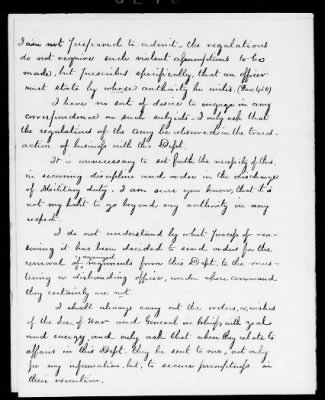 I am not prepared to admit - the regulations
do not require such violent assumptions to be
made, but prescribes specifically, that an officer
must state by whose authority he writes. (Par. 450)
I have no sort of desire to engage in any
correspondence on such subjects - I only ask that
the regulations of the Army be observed in the trans-
action of business with this Dept.
It is unnecessary to set forth the necessity of this,
in securing discipline and order in the discharge
of Military duty. I am sure you know, that it's
not my habit to go beyond my authority in any
respect.
I do not understand by what process of rea-
soning it has been decided to send orders for the
removal of regiments from this Dept. to the mus-
tering or disbanding officer, under whose command
they certainly are not.
I shall always carry out the orders, or wishes
of the Sec. of War and General in Chief with zeal
and energy, and only ask that when they relate to
affairs in this Dept. they be sent to me, not only
for my information, but, to secure promptness in
their execution.